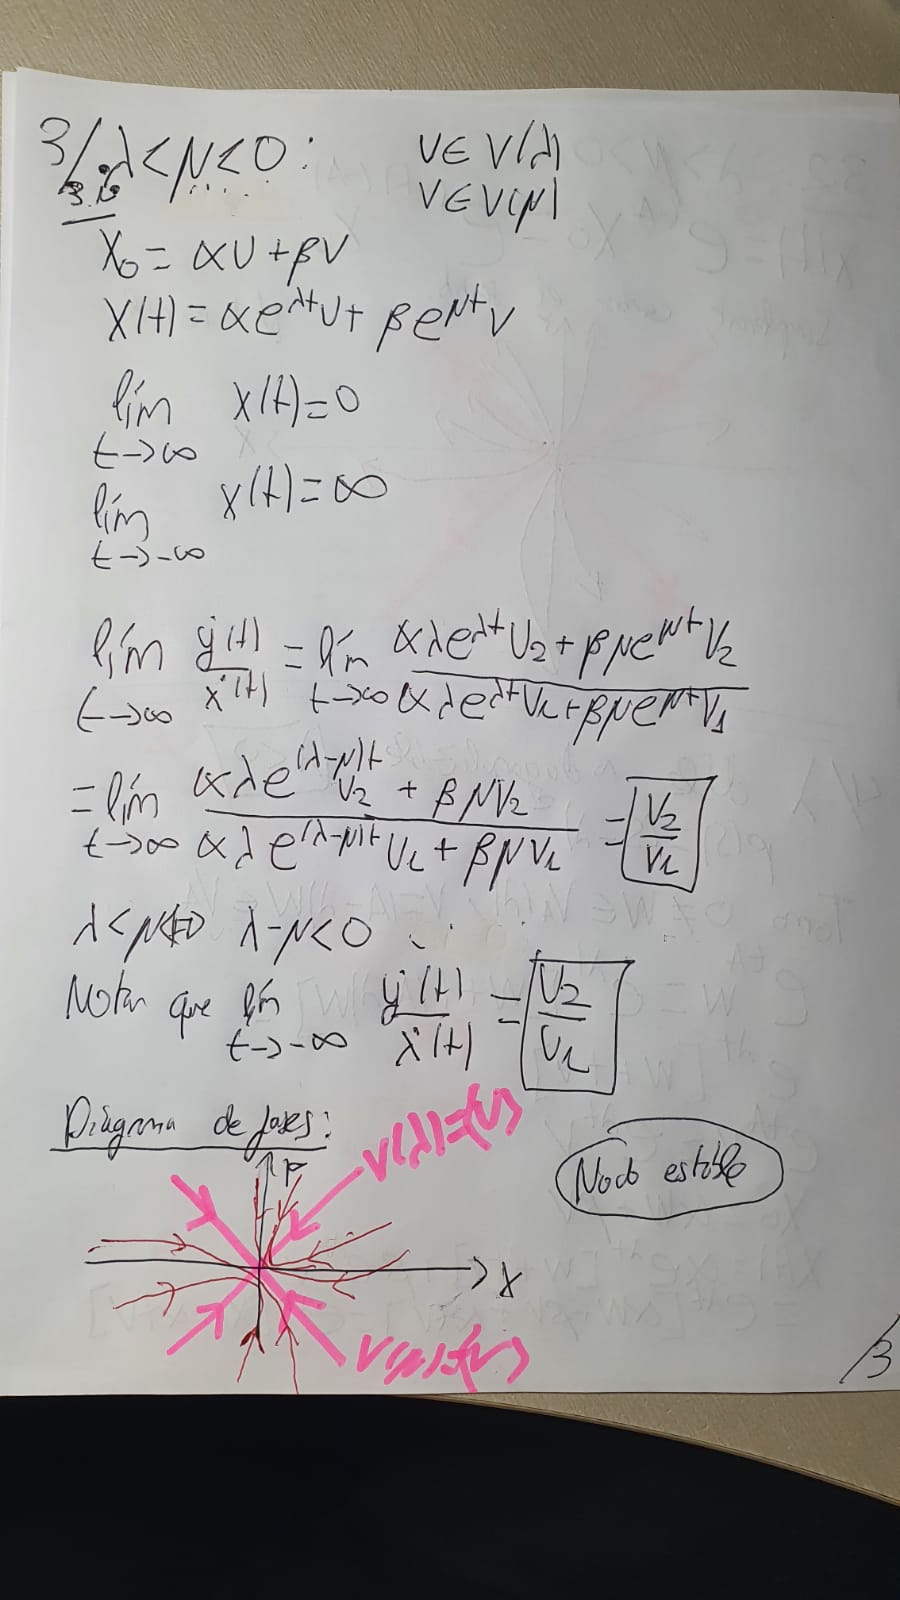 3/. λ<μ<0: U∈V(λ)
3.b V∈V(μ)
X₀ = αU+βV
X(t) = αe^{λt}U + βe^{μt}V
lím X(t)=0
t→∞
lím X(t)=∞
t→-∞
lím ẏ(t)/ẋ(t) = lím (αλe^{λt}U₂ + βμe^{μt}V₂)/(αλe^{λt}U₁ + βμe^{μt}V₁)
t→∞ t→∞
= lím (αλe^{(λ-μ)t}U₂ + βμV₂)/(αλe^{(λ-μ)t}U₁ + βμV₁) = V₂/V₁
t→∞
λ<μ⇔ λ-μ<0
Notar que lím ẏ(t)/ẋ(t) = U₂/U₁
t→-∞
Diagrama de fases:
V(λ)=⟨U⟩
Nodo estable
X
V(μ)=⟨V⟩
/3